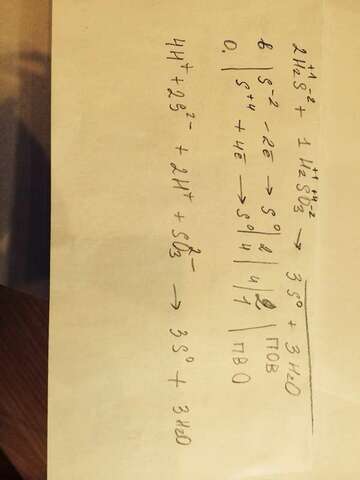 +1 -2 +1 +4 -2
2H₂S + 1H₂SO₃ → 3S⁰ + 3H₂O
в | S⁻² - 2ē → S⁰ | 2 | 4 | 2 | ПОВ
0. | S⁺⁴ + 4ē → S⁰ | 4 | 1 | ПВО
4H⁺ + 2S²⁻ + 2H⁺ + SO₃²⁻ → 3S⁰ + 3H₂O